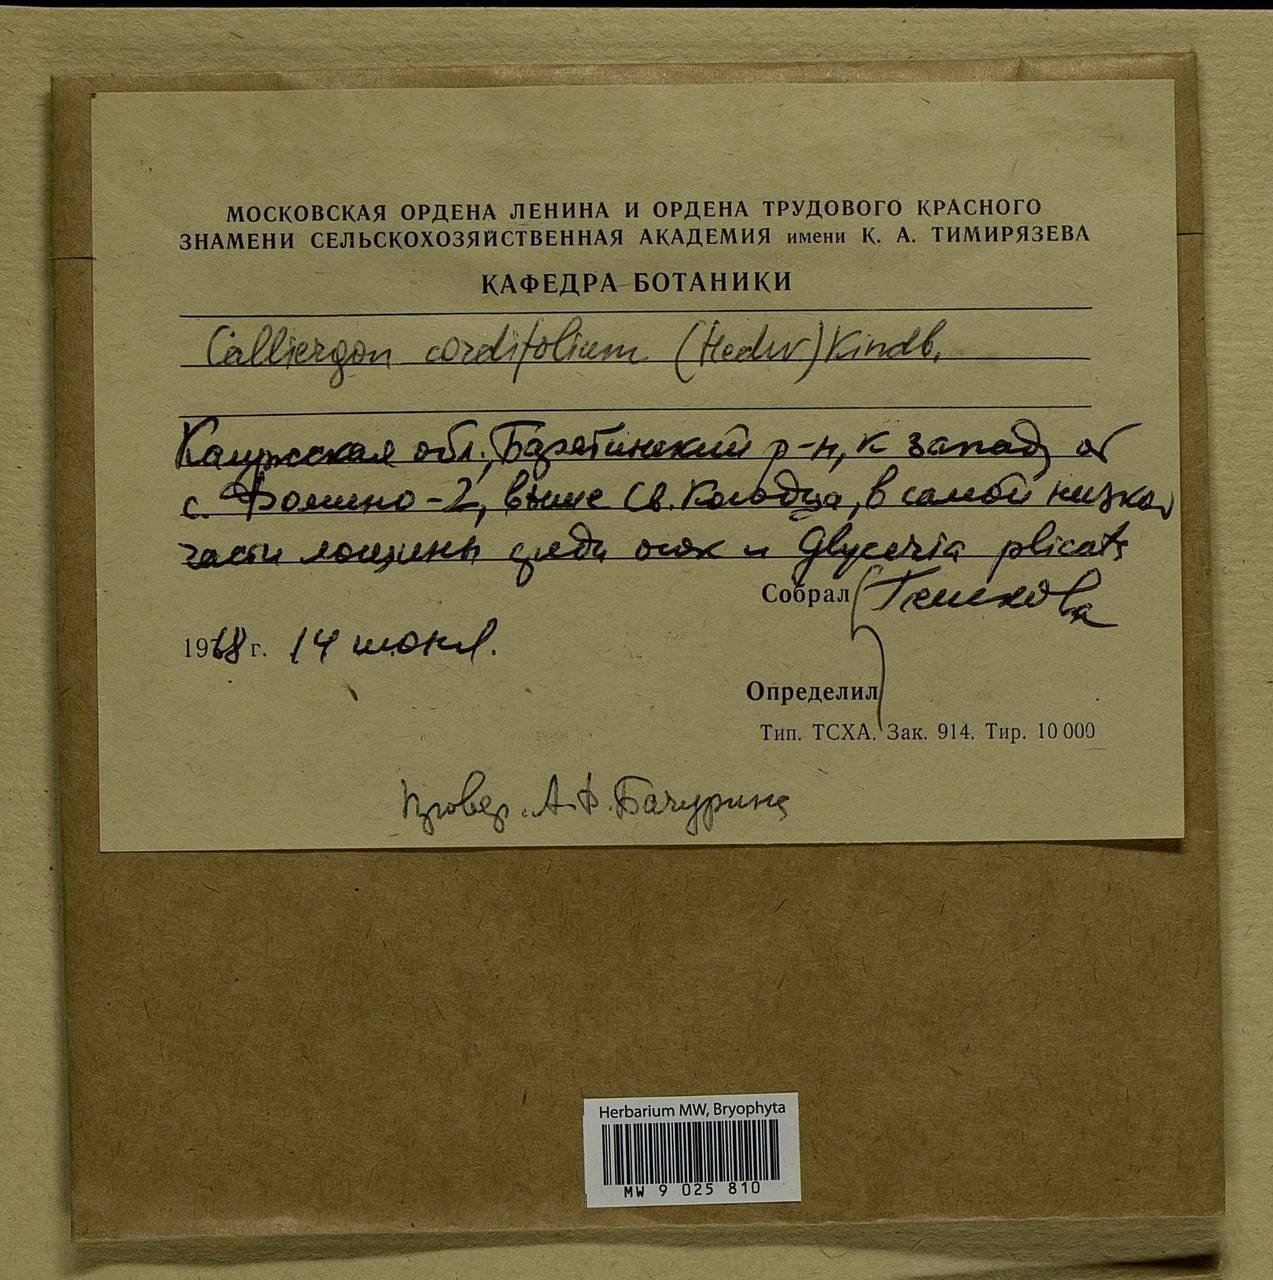 МОСКОВСКАЯ ОРДЕНА ЛЕНИНА И ОРДЕНА ТРУДОВОГО КРАСНОГО
ЗНАМЕНИ СЕЛЬСКОХОЗЯЙСТВЕННАЯ АКАДЕМИЯ имени К. А. ТИМИРЯЗЕВА
КАФЕДРА БОТАНИКИ
Calliergon cordifolium (Hedw) Kindb.
Калужская обл., Барятинский р-н, к западу от
с. Фомино-2, выше Св. Колодца, в самой низкой
части лощины среди осок и Glyceria plicata
Собрал
19 г. 14 июня.
Определил
Тип. ТСХА. Зак. 914. Тир. 10 000
Провер. А.Ф. Бачурина
Herbarium MW, Bryophyta
MW 9 025 810